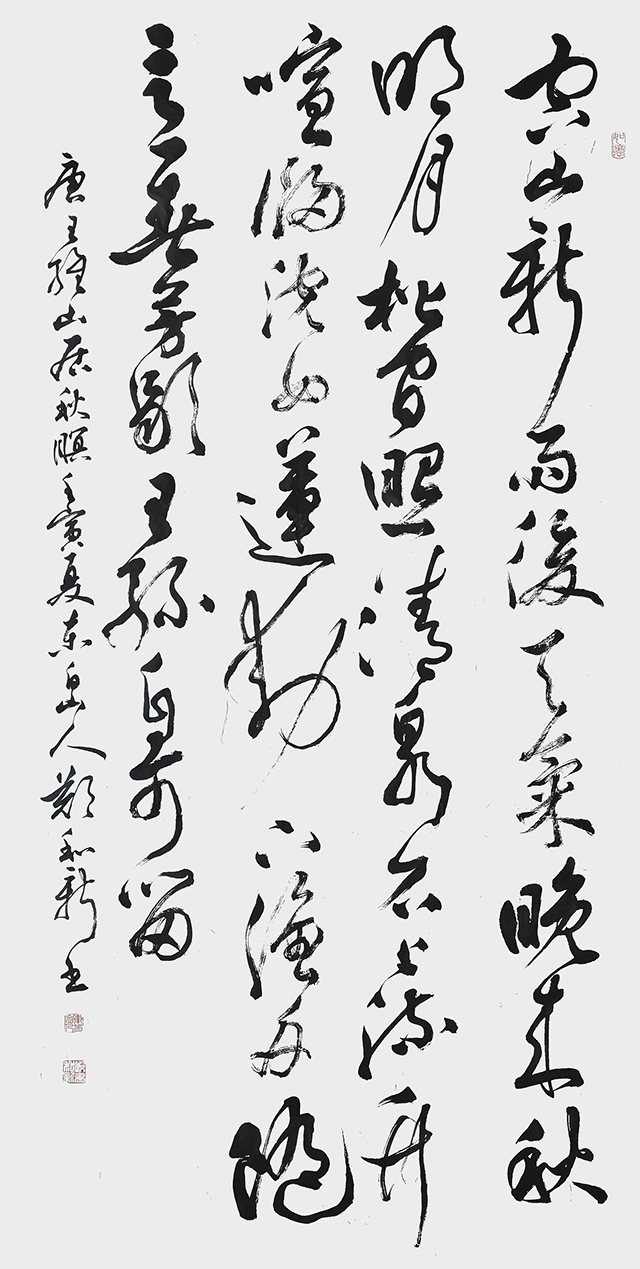 空山新雨後天氣晚来秋
明月松間照清泉石上流竹
喧歸浣女蓮動下漁舟隨
意春芳歇王孫自可留
唐王維山居秋暝壬寅夏東白山人鄭和新书